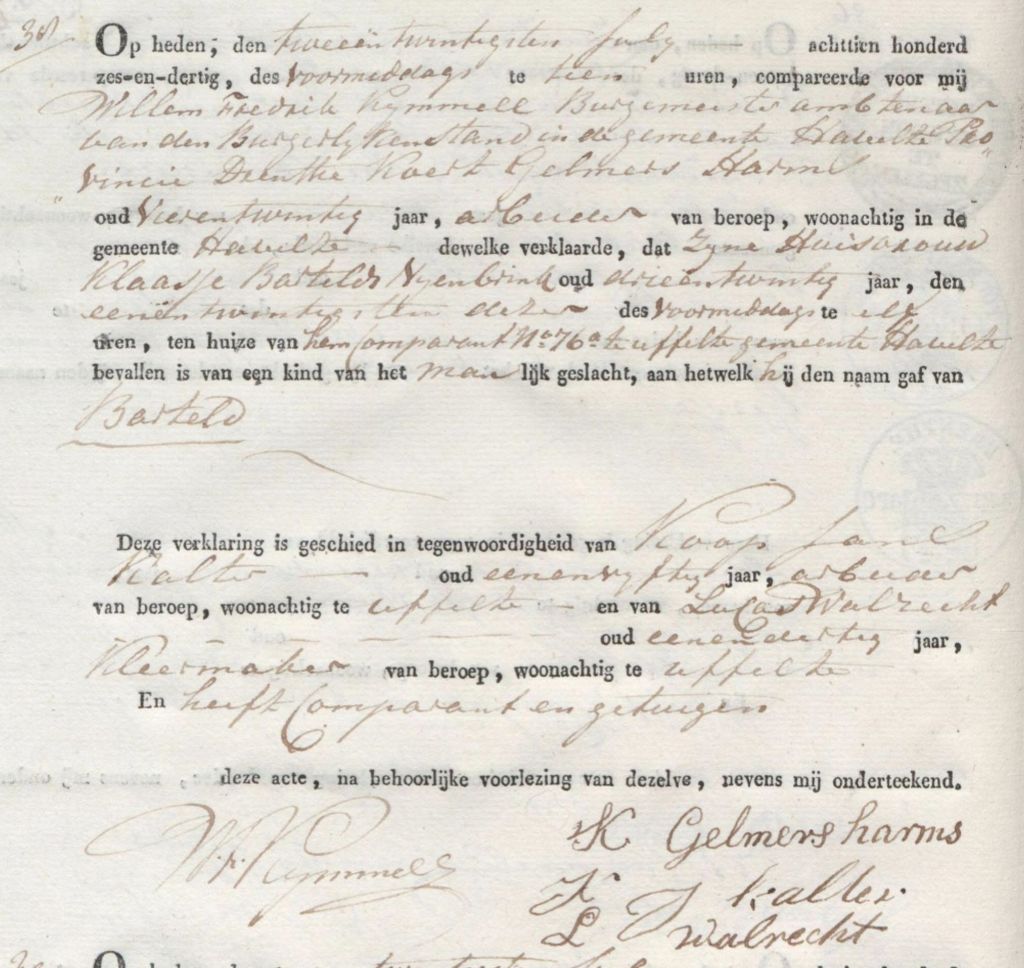 38
Op heden, den tweeëntwintigsten July achttien honderd
zes-en-dertig, des Voormiddags te tien uren, compareerde voor mij
Willem Fredrik Kymmell Burgemeester ambtenaar
van den Burgerlyken Stand in de gemeente Havelte Pro„
„vincie Drenthe Koert Gelmers Harms
oud Vierentwintig jaar, arbeider van beroep, woonachtig in de
gemeente Havelte — dewelke verklaarde, dat Zyne Huisvrouw
Klaasje Bartelds Uyenbrink oud drieëntwintig jaar, den
eenëntwintigsten dezer des Voormiddags te elf
uren, ten huize van hem Comparant No 76a te uffelte gemeente Havelte
bevallen is van een kind van het man lijk geslacht, aan hetwelk hij den naam gaf van
Barteld
Deze verklaring is geschied in tegenwoordigheid van Koop Jans
Kalter — oud eenenvyftig jaar, arbeider
van beroep, woonachtig te uffelte — en van Lucas Walrecht
— — — — oud eenendertig jaar,
Kleermaker van beroep, woonachtig te uffelte
En heeft Comparant en getuigen
deze acte, na behoorlijke voorlezing van dezelve, nevens mij onderteekend.
W. F. Kymmell
K Gelmers harms
K J kalter
L walrecht